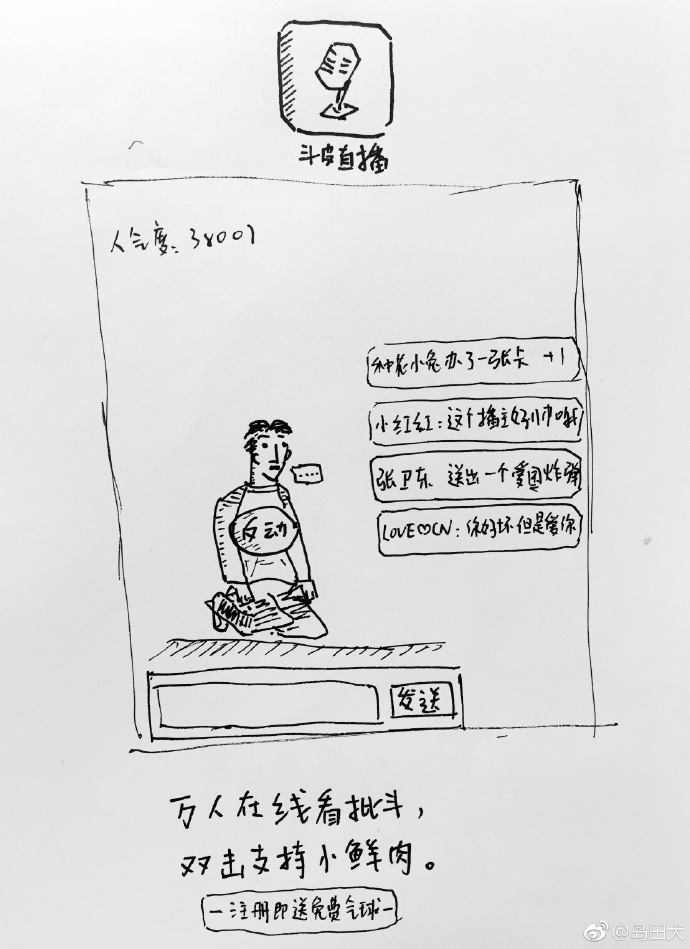 斗皮直播
人气度：38001
种花小兔办了一张卡 +1
小红红：这个播主好帅哦
张卫东：送出一个爱国炸弹
LOVE♡CN：你好坏但是爱你
……
反动
发送
万人在线看批斗，
双击支持小鲜肉。
—注册即送免费气球—
@岛田犬